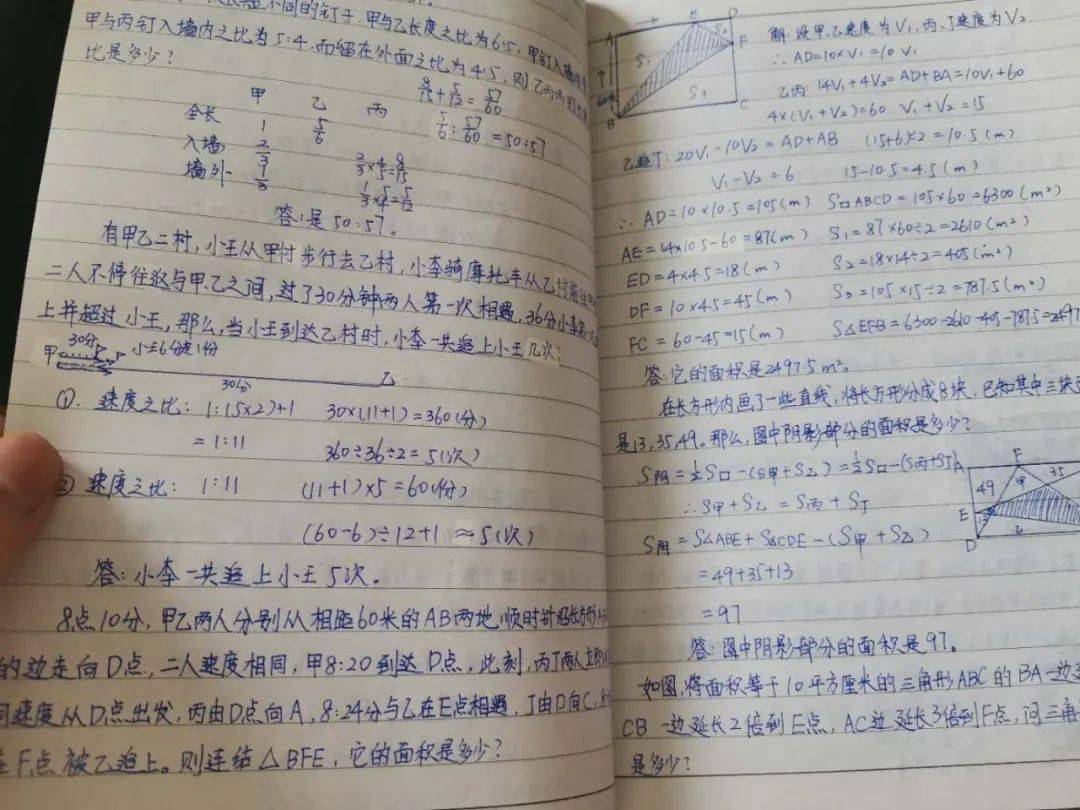 长短不同的钉子,甲与乙长度之比为6:5,甲钉入墙
甲与丙钉入墙内之比为5:4,而留在外面之比为4:5,则乙丙
比是多少?
甲 乙 丙
全长 1 5/6
入墙 2/3
墙外 1/3
8/15+5/12=57/60
5/6:57/60=50:57
2/3×4/5=8/15
1/3×5/4=5/12
答:是50:57。
有甲乙二村,小王从甲村步行去乙村,小李骑摩托车从乙村
二人不停往返与甲.乙之间,过了30分钟两人第一次相遇,36分小李第
上并超过小王,那么,当小王到达乙村时,小李一共追上小王几次?
30分 小王6分走1份
甲 乙
30分
①. 速度之比:1:(5×2)+1 30×(11+1)=360(分)
=1:11 360÷36÷2=5(次)
② 速度之比:1:11 (11+1)×5=60(份)
(60-6)÷12+1≈5(次)
答:小李一共追上小王5次.
8点10分,甲乙两人分别从相距60米的AB两地,顺时针沿长方形
的边走向D点,二人速度相同,甲8:20到达D点,此刻,丙丁两人立即
同速度从D点出发,丙由D点向A,8:24分与乙在E点相遇,丁由D向C,
在F点被乙追上。则连结△BFE,它的面积是多少?
A E D
S1 S2 F
60米 S3
B C
解:设甲.乙速度为V1,丙、丁速度为V2
∴AD=10×V1=10V1
乙丙:14V1+4V2=AD+BA=10V1+60
4×(V1+V2)=60 V1+V2=15
乙追丁:20V1-10V2=AD+AB (15+6)÷2=10.5(m)
V1-V2=6 15-10.5=4.5(m)
∴AD=10×10.5=105(m) S□ABCD=105×60=6300(m²)
AE=14×10.5-60=87(m) S1=87×60÷2=2610(m²)
ED=4×4.5=18(m) S2=18×14÷2=405(m²)
DF=10×4.5=45(m) S3=105×15÷2=787.5(m²)
FC=60-45=15(m) S△EFB=6300-2610-405-787.5=2497
答:它的面积是2497.5m²。
在长方形内画了一些直线,将长方形分成8块.已知其中三块
是13,35,49。那么,图中阴影部分的面积是多少?
S阴=½S□-(S甲+S乙)=½S□-(S丙+S丁)
∴S甲+S乙=S丙+S丁
S阴=S△ABE+S△CDE-(S甲+S乙)
=49+35+13
=97
A F
49 甲 35
E 13
D 乙
答:图中阴影部分的面积是97。
如图,将面积等于10平方厘米的三角形ABC的BA一边
CB一边延长2倍到E点,AC边延长3倍到F点,问三角
是多少?